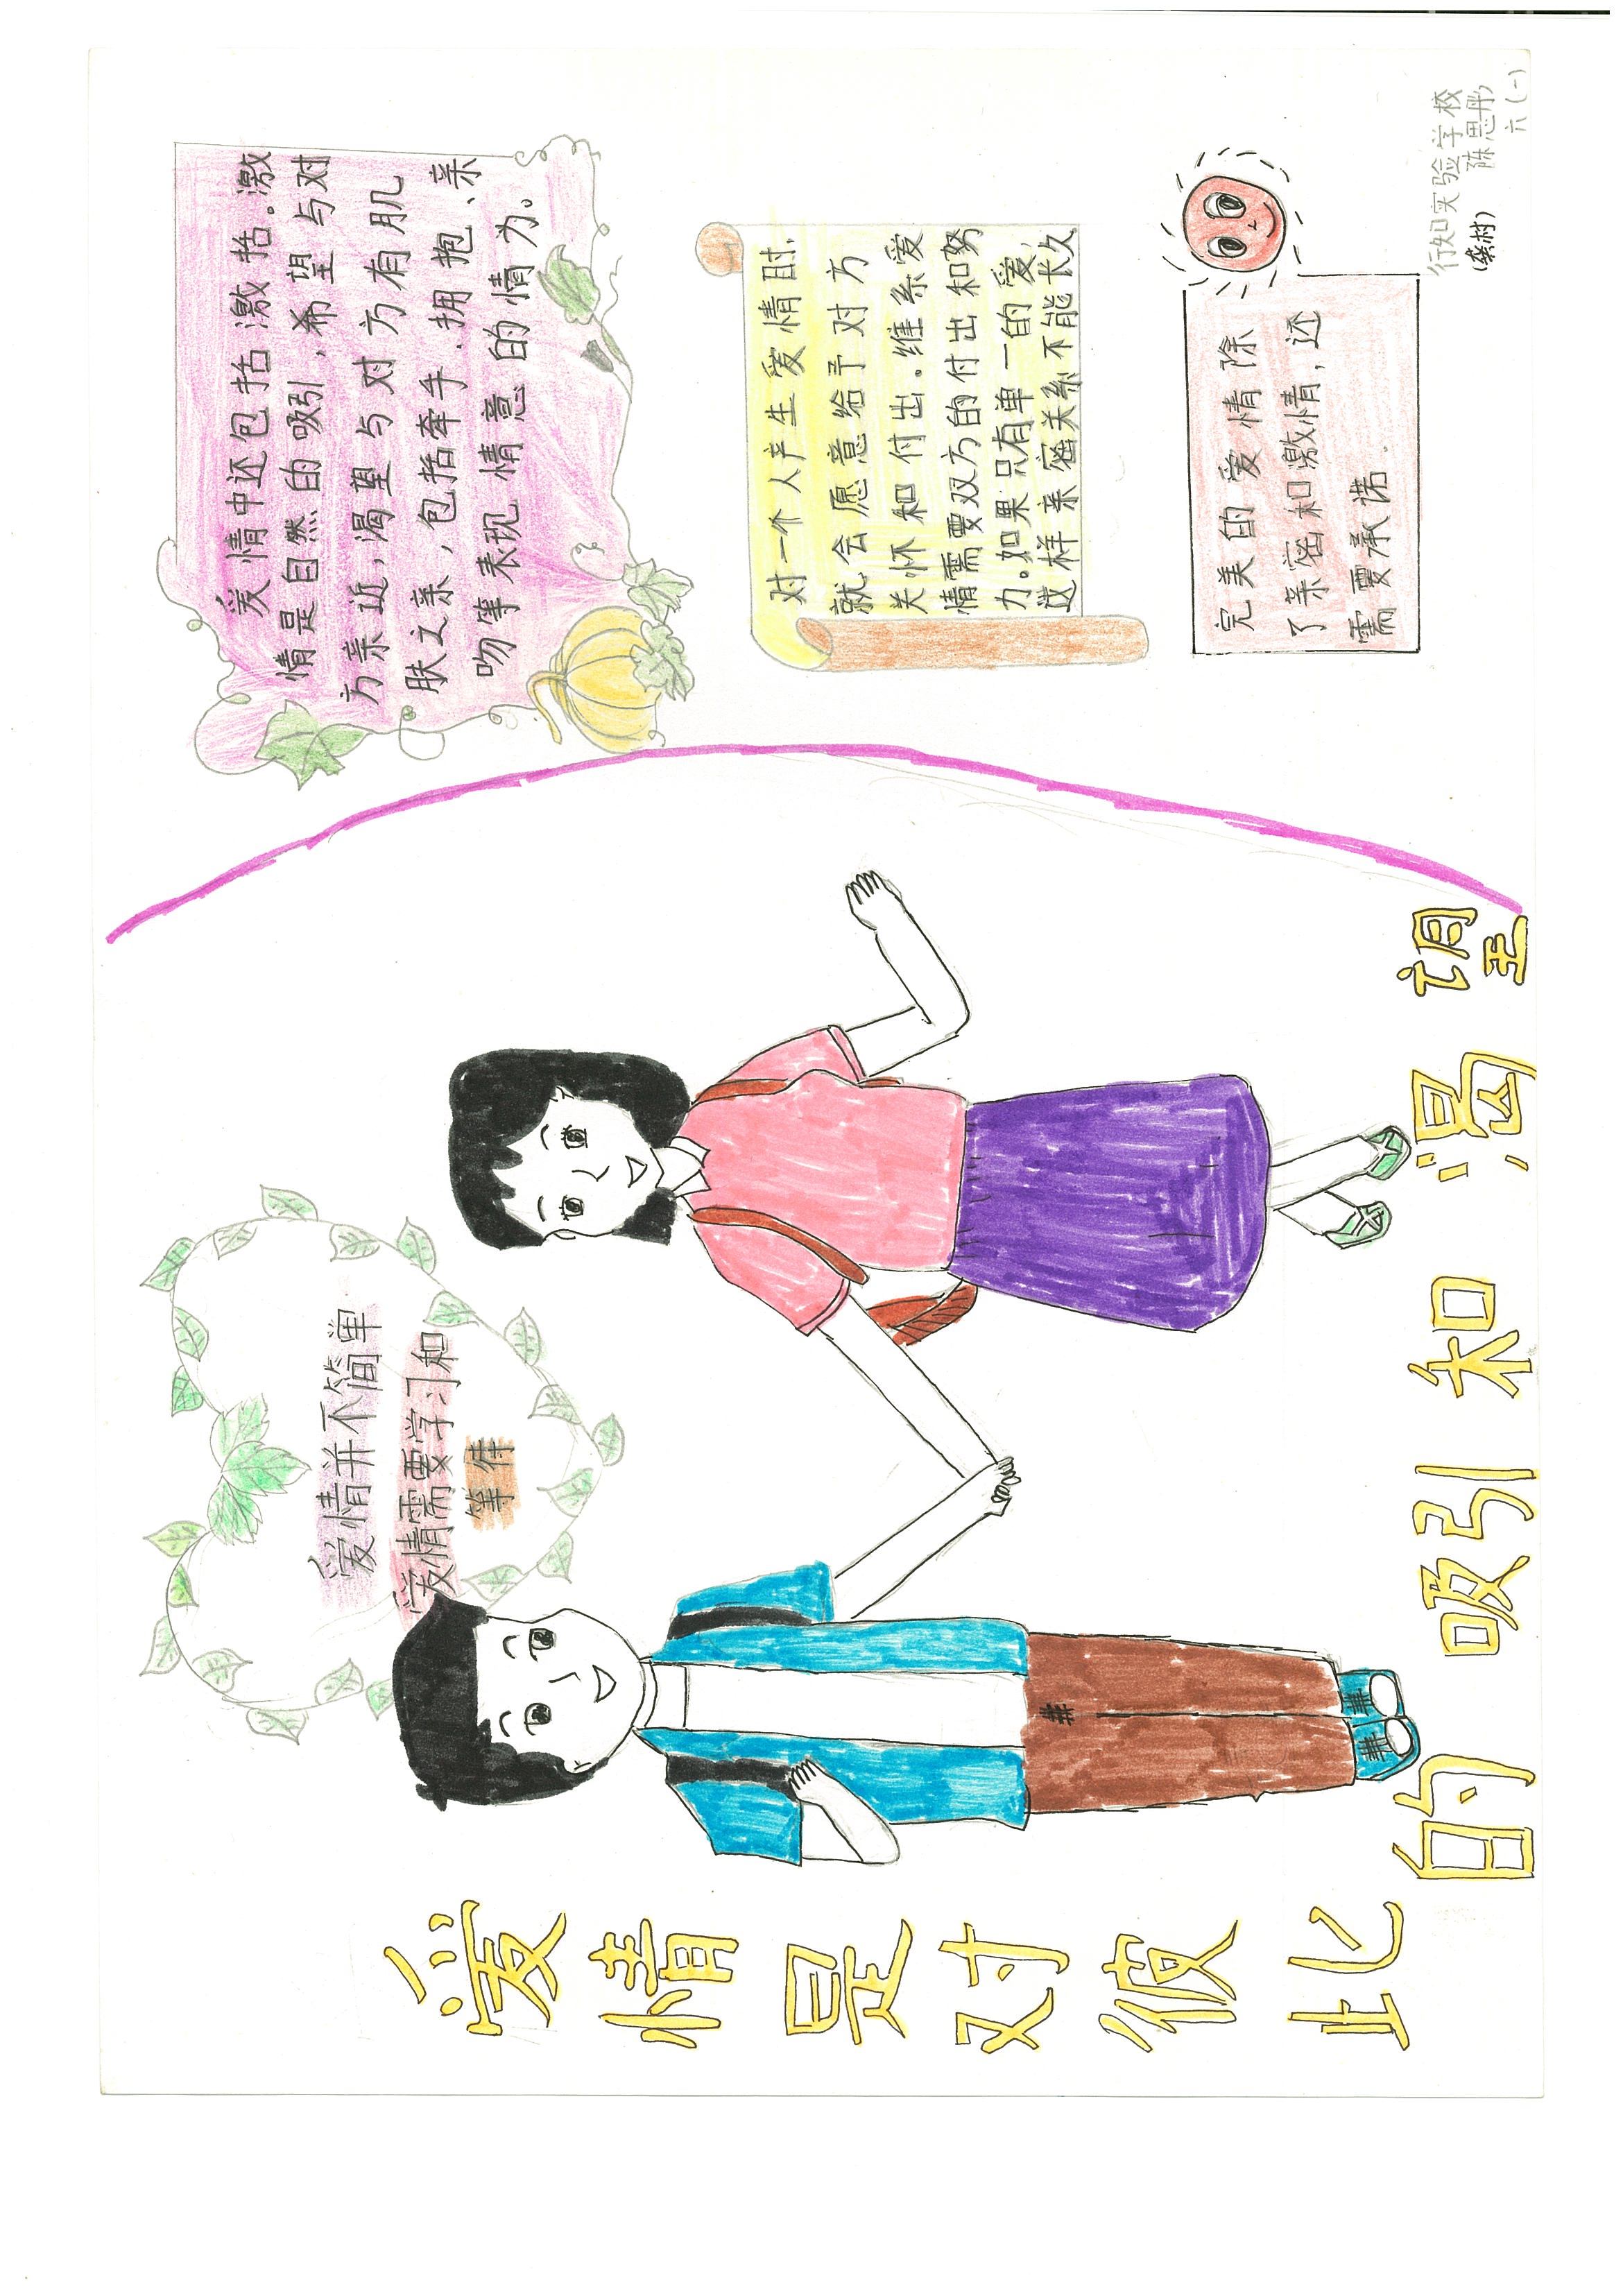 爱情是对彼此
的吸引和渴望
爱情并不简单
爱情需要学习和
等待
爱情中还包括激括。激
情是自然的吸引,希望与对
方亲近,渴望与对方有肌
肤之亲,包括牵手.拥抱、亲
吻等表现情意的情为。
对一个人产生爱情时,
就会愿意给予对方
关怀和付出.维系爱
情需要双方的付出和努
力。如果只有单一的爱,
这样亲密关系不能长久
完美的爱情除
了亲密和激情,还
需要承诺.
行知实验学校
陈思彤
六(一)